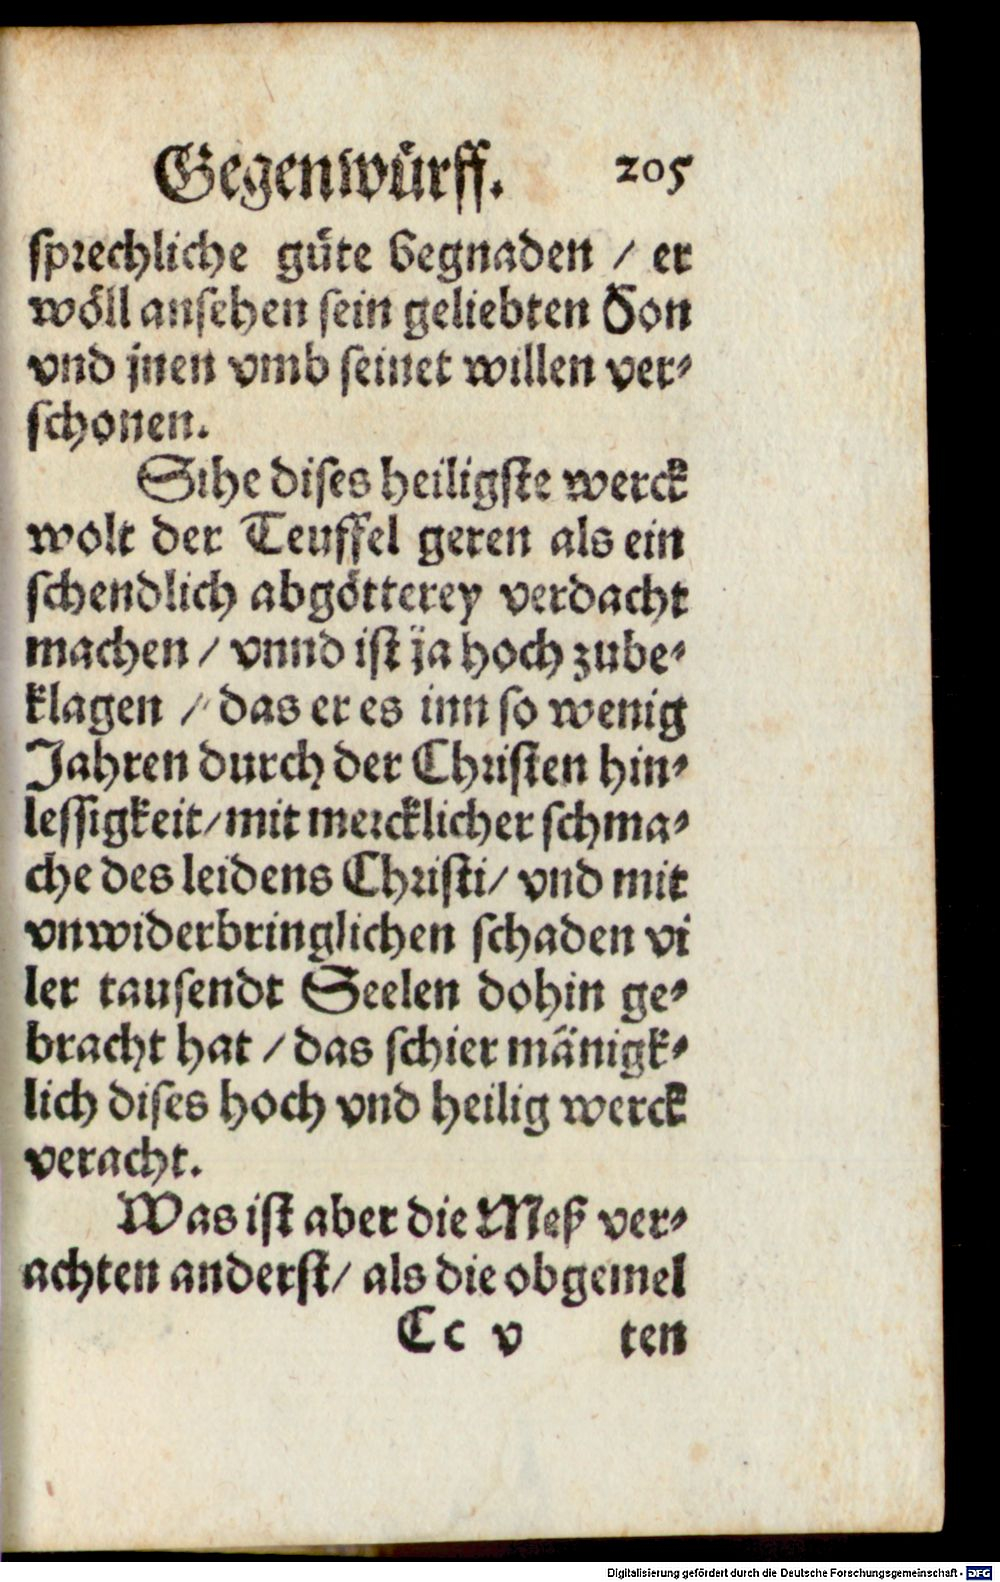 Gegenwürff. 205
sprechliche güte begnaden / er
wöll ansehen sein geliebten Son
vnd jnen vmb seinet willen ver-
schonen.
Sihe dises heiligste werck
wolt der Teuffel geren als ein
schendlich abgötterey verdacht
machen / vnnd ist ja hoch zube-
klagen / das er es inn so wenig
Jahren durch der Christen hin-
lessigkeit / mit mercklicher schma-
che des leidens Christi / vnd mit
vnwiderbringlichen schaden vi
ler tausendt Seelen dohin ge-
bracht hat / das schier mänigk-
lich dises hoch vnd heilig werck
veracht.
Was ist aber die Meß ver-
achten anderst / als die obgemel
Cc v ten
Digitalisierung gefördert durch die Deutsche Forschungsgemeinschaft - DFG